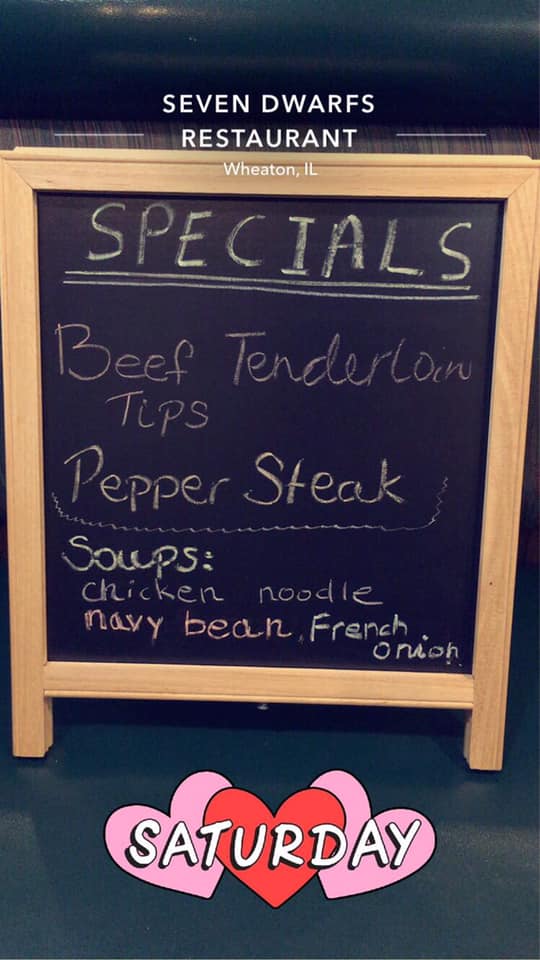 SEVEN DWARFS
RESTAURANT
Wheaton, IL
SPECIALS
Beef Tenderloin
Tips
Pepper Steak
Soups:
chicken noodle
navy bean, French
onion
SATURDAY